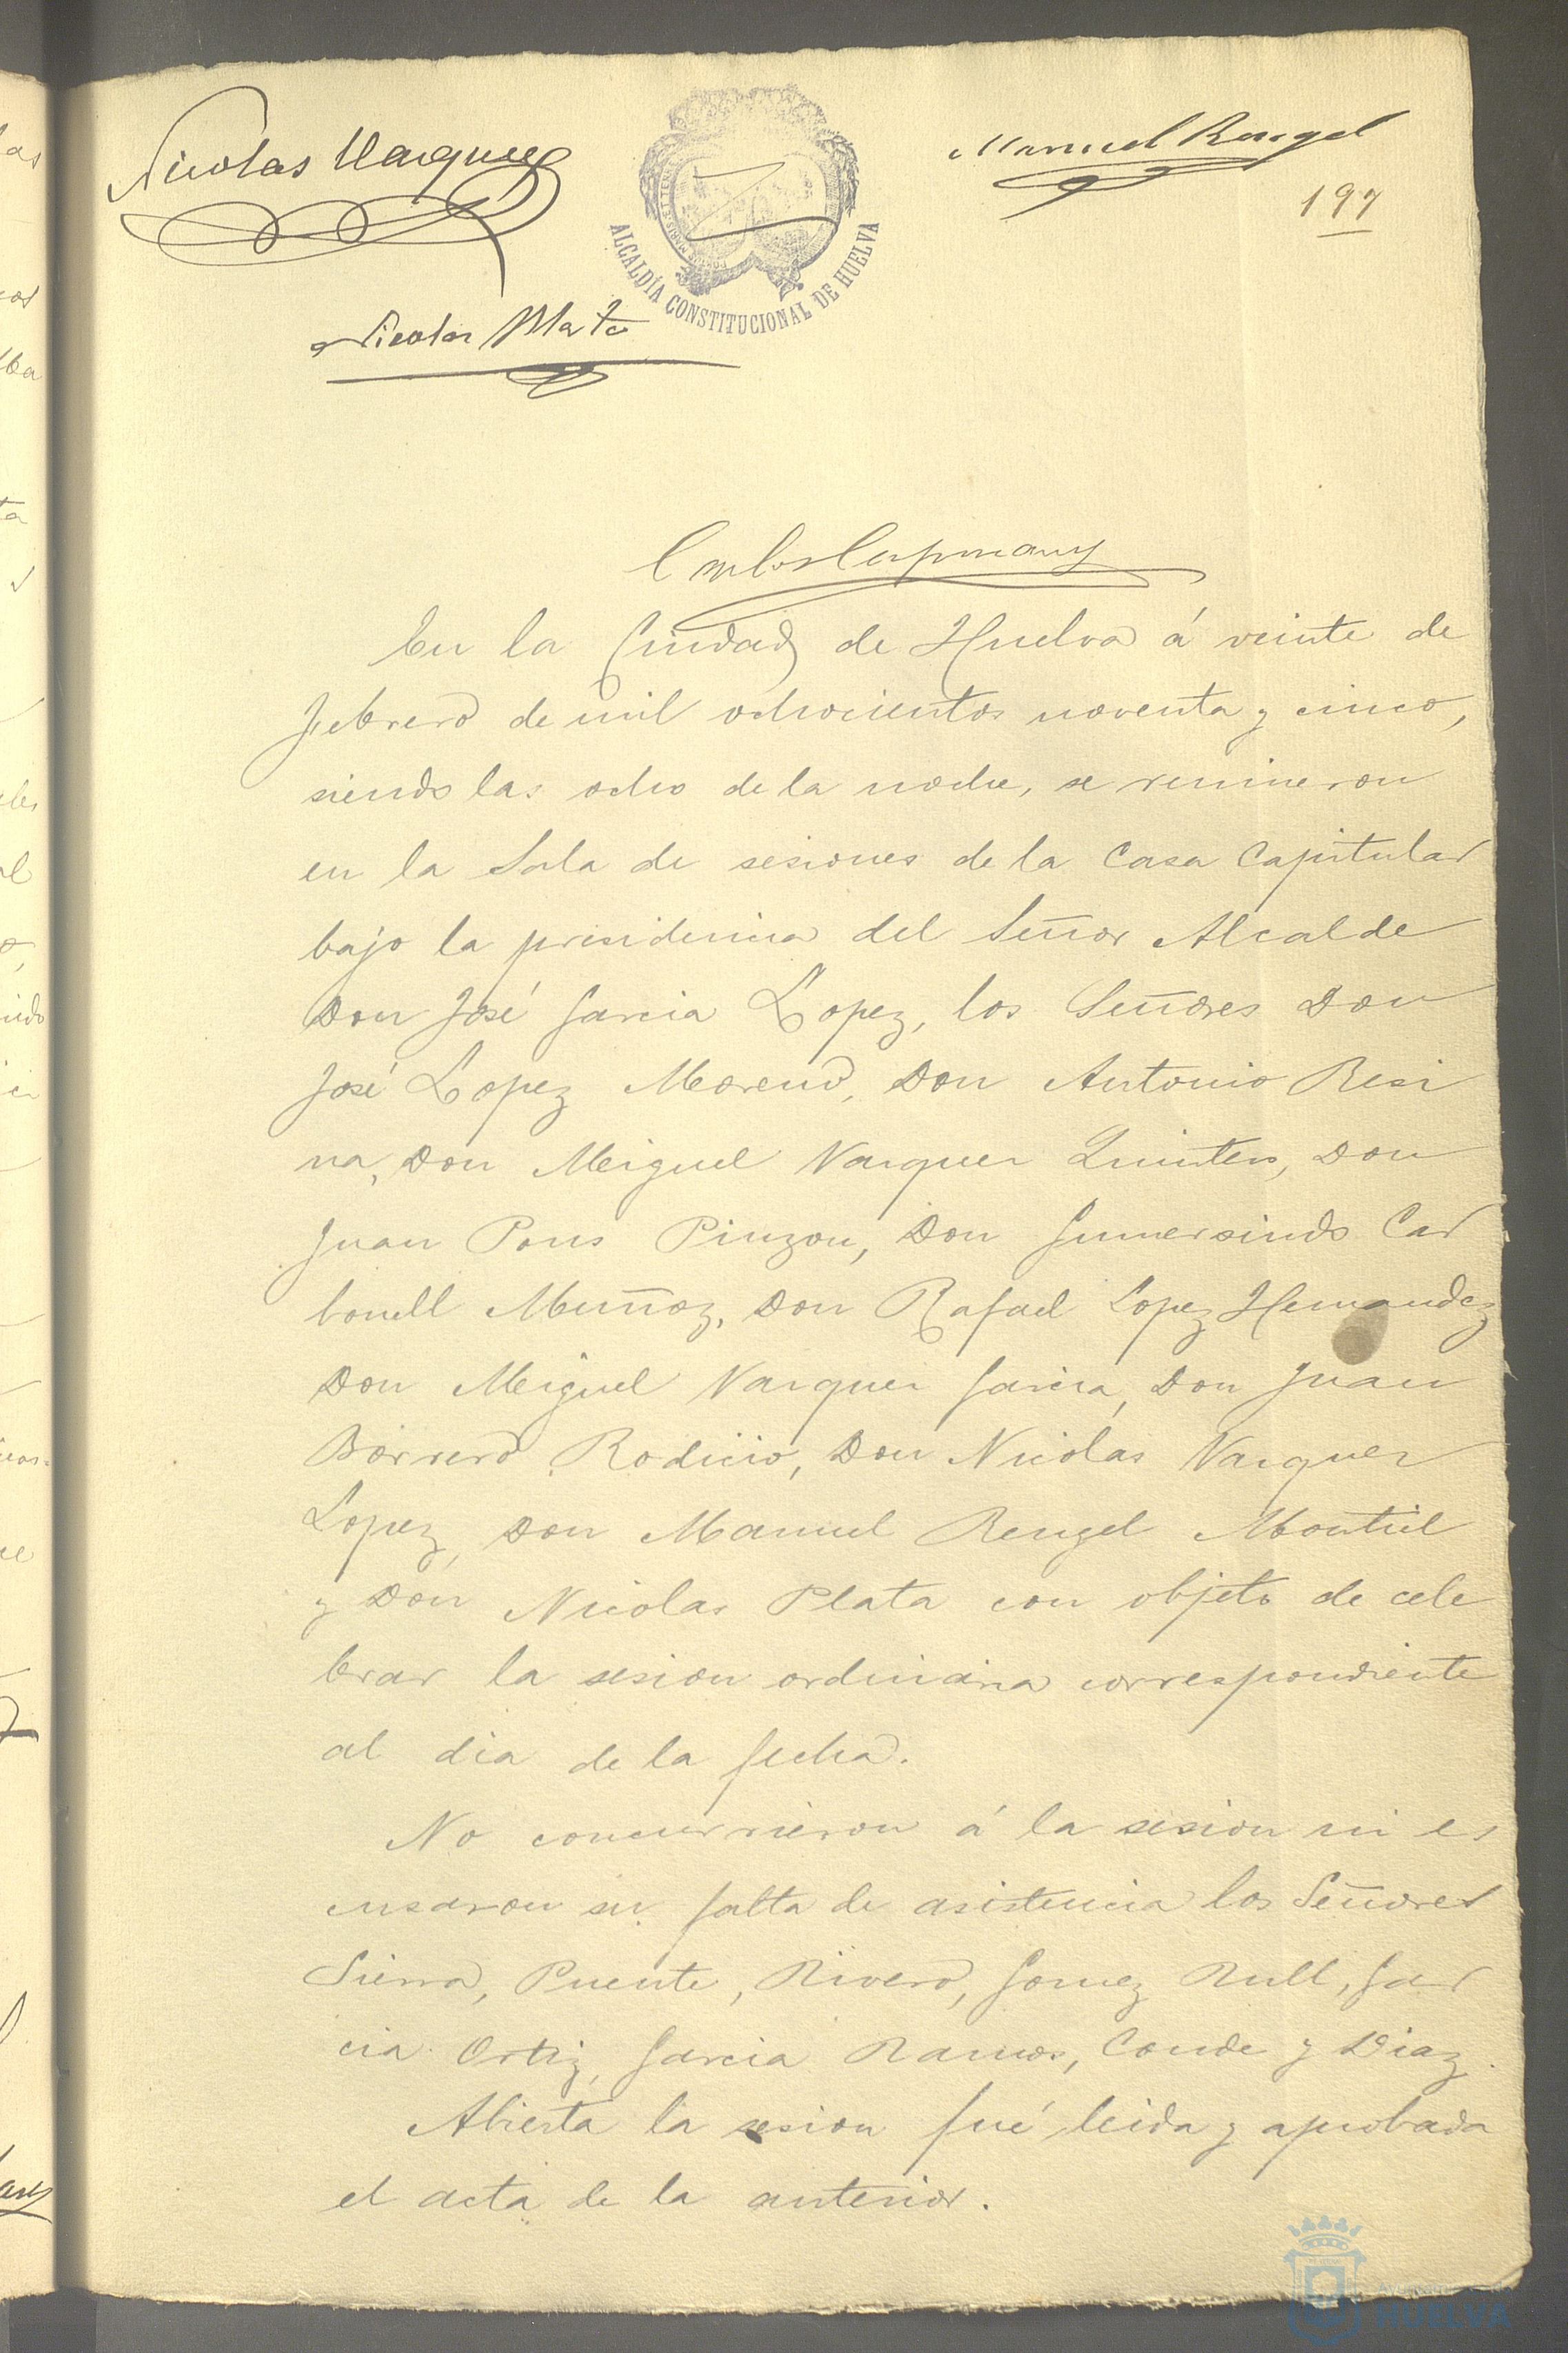 Nicolas Vazquez
Manuel Rengel
197
ALCALDÍA CONSTITUCIONAL DE HUELVA
Nicolas Plata
Carlos Capmany
En la Ciudad de Huelva á veinte de
Febrero de mil ochocientos noventa y cinco,
siendo las ocho de la noche, se reunieron
en la Sala de sesiones de la Casa Capitular
bajo la presidencia del Señor Alcalde
Don José Garcia Lopez, los Señores Don
José Lopez Moreno, Don Antonio Resi
na, Don Miguel Vazquez Quintero, Don
Juan Pons Pinzon, Don Gumersindo Car
bonell Muñoz, Don Rafael Lopez Hernandez
Don Miguel Vazquez Garcia, Don Juan
Borrero Rodicio, Don Nicolas Vazquez
Lopez, Don Manuel Rengel Montiel
y Don Nicolas Plata con objeto de cele
brar la sesion ordinaria correspondiente
al dia de la fecha.
No concurrieron á la sesion ni es
cusaron su falta de asistencia los Señores
Sierra, Puente, Rivero, Gomez Rull, Gar
cia Ortiz, Garcia Ramos, Conde y Diaz.
Abierta la sesion fué leida y aprobada
el acta de la anterior.
HUELVA